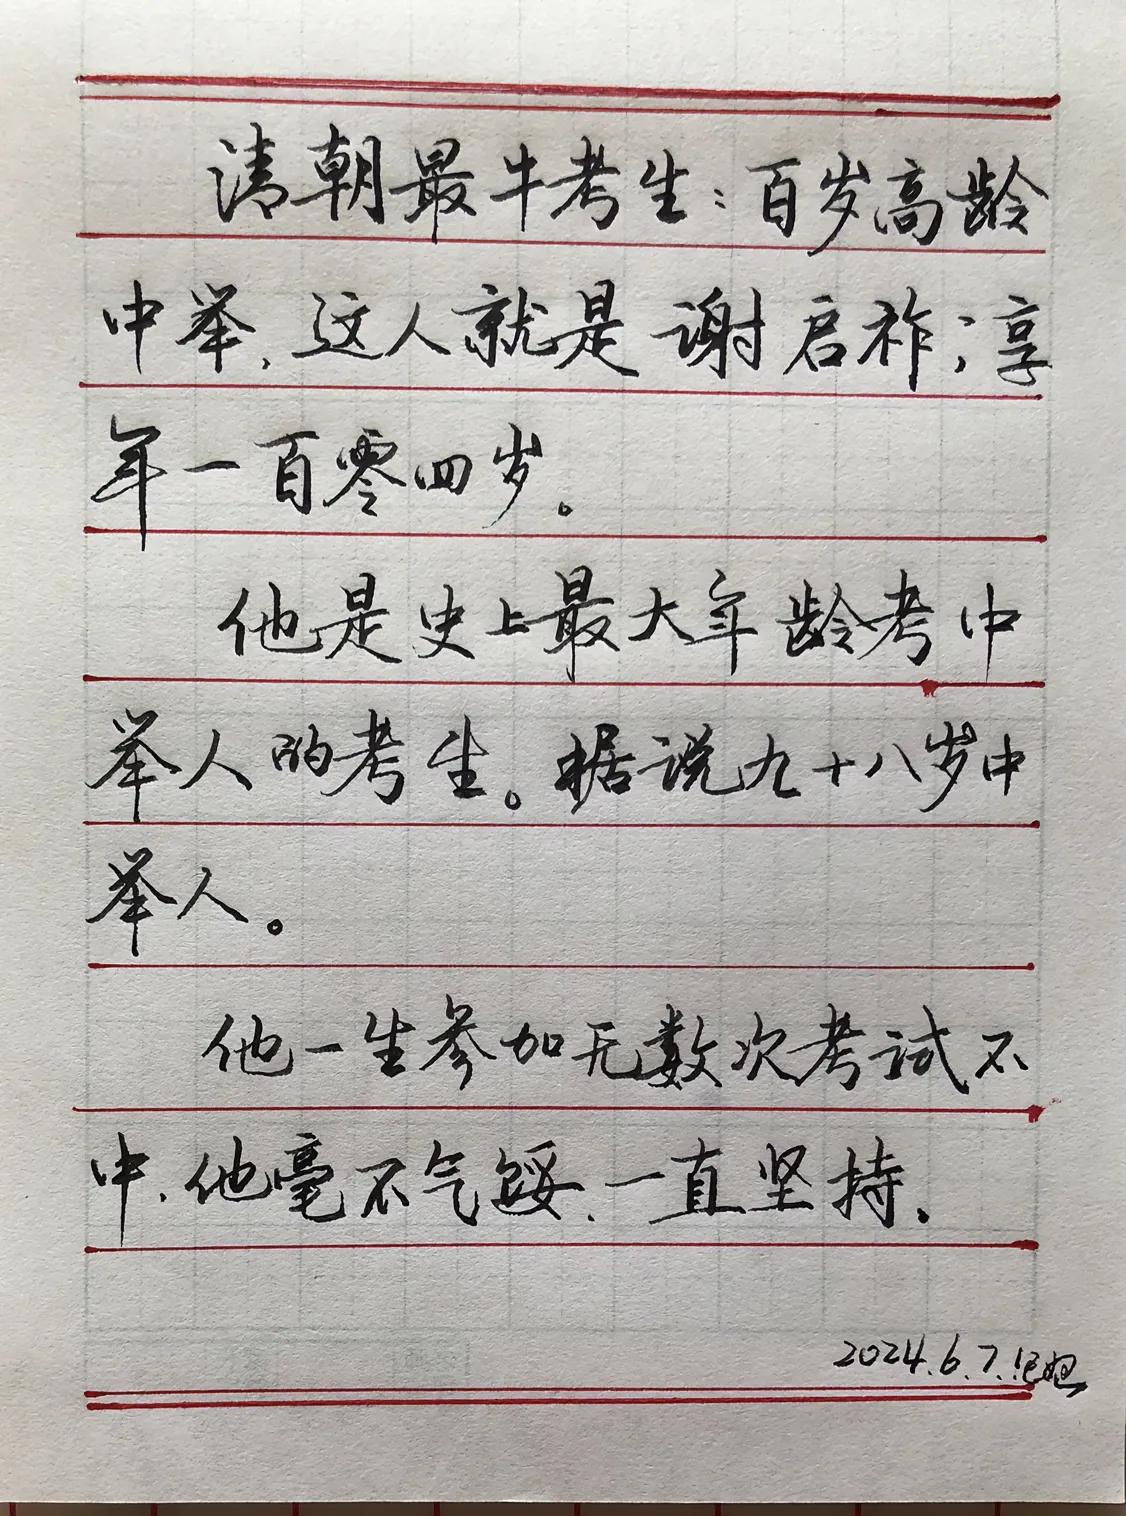 清朝最牛考生：百岁高龄
中举，这人就是谢启祚；享
年一百零四岁。
他是史上最大年龄考中
举人的考生。据说九十八岁中
举人。
他一生参加无数次考试不
中，他毫不气馁、一直坚持。
2024.6.7.